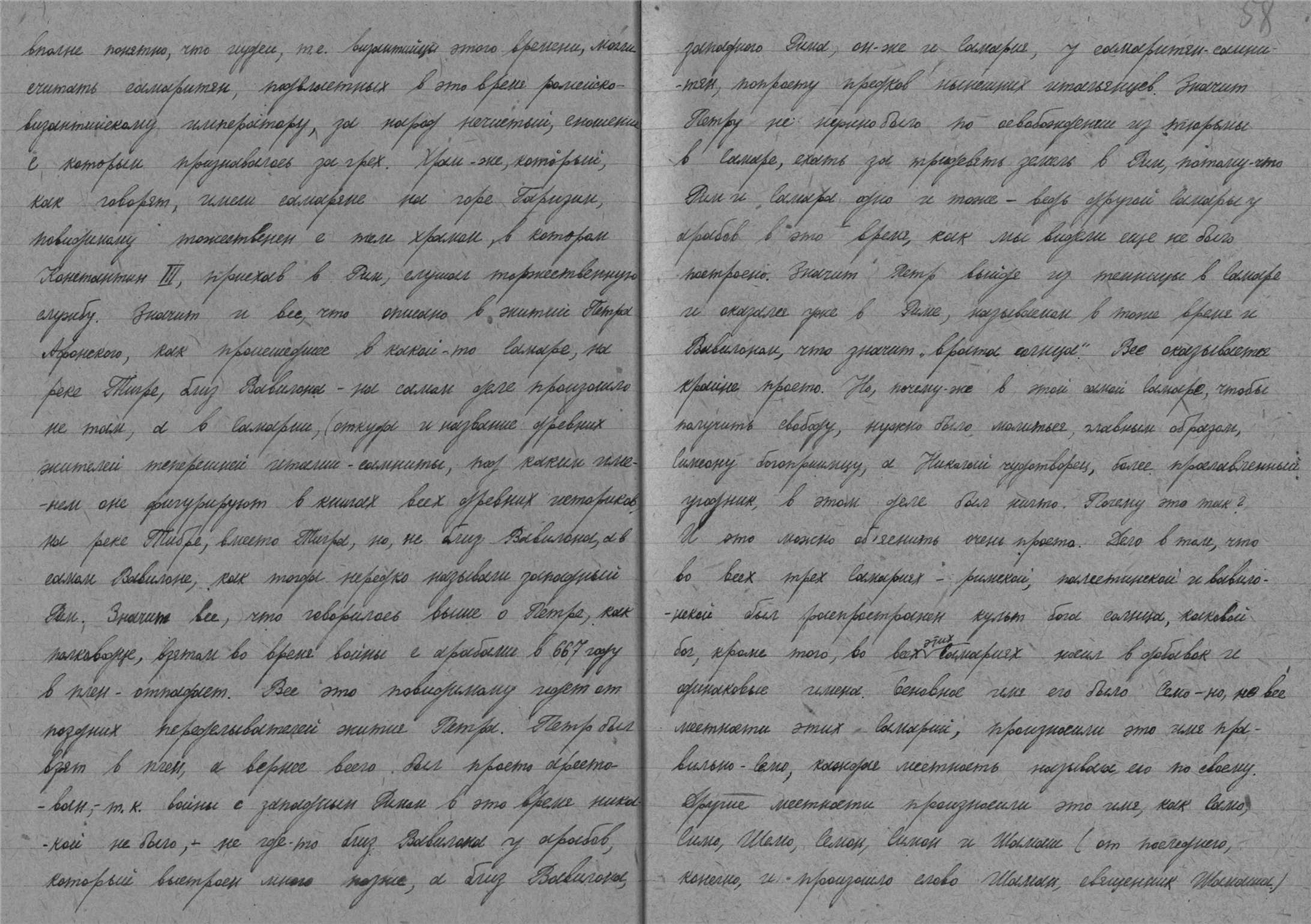 вполне понятно, что иудеи, т.е. византийцы этого времени, могли
считать самаритян, подвластных в это время ромейско-
византийскому императору, за народ нечистый, сношение
с которым признавалось за грех. Храм-же, который,
как говорят, имели самаряне на горе Гаризим,
повидимому тожественен с тем храмом, в котором
Константин III, приехав в Рим, слушал торжественную
службу. Значит и все, что описано в житии Петра
Афонского, как происшедшее в какой-то Самаре, на
реке Тигре, близ Вавилона - на самом деле произошло
не там, а в Самарии, (откуда и название древних
жителей теперешней италии - самниты, под каким име-
-нем оне фигурируют в книгах всех древних историков,
на реке Тибре, вместо Тигра, но, не близ Вавилона, а в
самом Вавилоне, как тогда нередко называли западный
Рим. Значит все, что говорилось выше о Петре, как
полководце, взятом во время войны с арабами в 667 году
в плен - отпадает. Все это повидимому идет от
поздних переделывателей жития Петра. Петр был
взят в плен, а вернее всего был просто аресто-
-ван, - т.к. войны с западным Римом в это время ника-
-кой не было, - не где-то близ Вавилона у арабов,
который выстроен много позже, а близ Вавилона,
58
западного Рима, он-же и Самария, у самаритян-самни-
-тян, попросту предков нынешних итальянцев. Значит
Петру не нужно было по освобождении из тюрьмы
в Самаре, ехать за тридевять земель в Рим, потому-что
Рим и Самара одно и тоже - ведь другой Самары у
арабов в это время, как мы видели еще не было
построено. Значит Петр выйдя из темницы в Самаре
и оказался уже в Риме, называемом в тоже время и
Вавилоном, что значит „врата солнца“. Все оказывается
крайне просто. Но, почему-же в этой самой Самаре, чтобы
получить свободу, нужно было молиться, главным образом,
Симеону богоприимцу, а Николай чудотворец, более прославленный
угодник, в этом деле был ничто. Почему это так?
И это можно об'яснить очень просто. Дело в том, что
во всех трех Самариях - римской, палестинской и вавило-
-нской был распространен культ бога солнца, каковой
бог, кроме того, во всех этих Самариях носил в добавок и
одинаковые имена. Основное имя его было Семо - но, не все
местности этих Самарий, произносили это имя пра-
вильно - Семо, каждая местность называла его по своему.
Другие местности произносили это имя, как Само,
Симо, Шемо, Семон, Симон и Шамаш (от последнего,
конечно, и произошло слово Шаман, священник Шамаша)